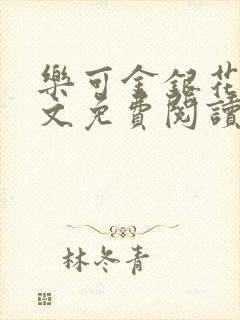 樂可金銀花
文免費閱讀
林冬青